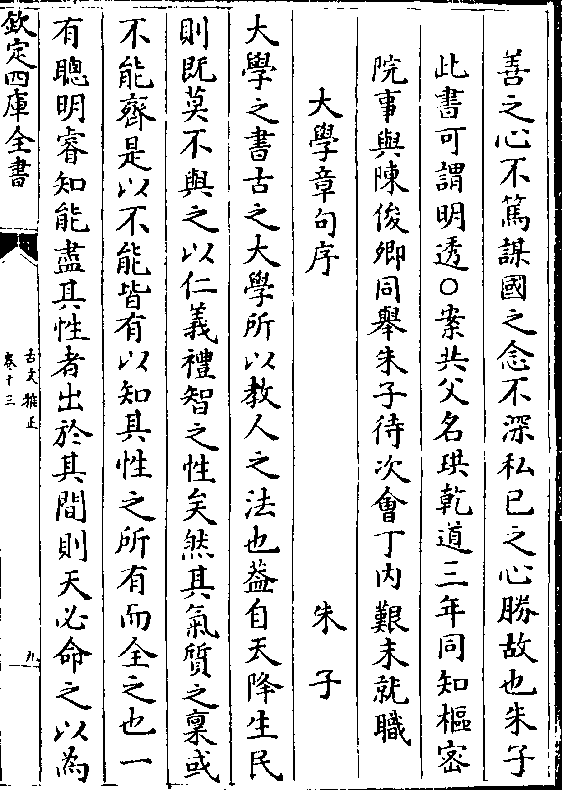 善之心不篤謀國之念不深私已之心勝故也朱子
此書可謂明透○案共父名珙乾道三年同知樞密
院事與陳俊卿同舉朱子待次會丁内艱未就職
大學章句序
朱子
大學之書古之大學所以教人之法也葢自天降生民
則既莫不與之以仁義禮智之性矣然其氣質之稟或
不能齊是以不能皆有以知其性之所有而全之也一
有聰明睿知能盡其性者出於其間則天必命之以為
欽定四庫全書
古文雅正
卷十三
九